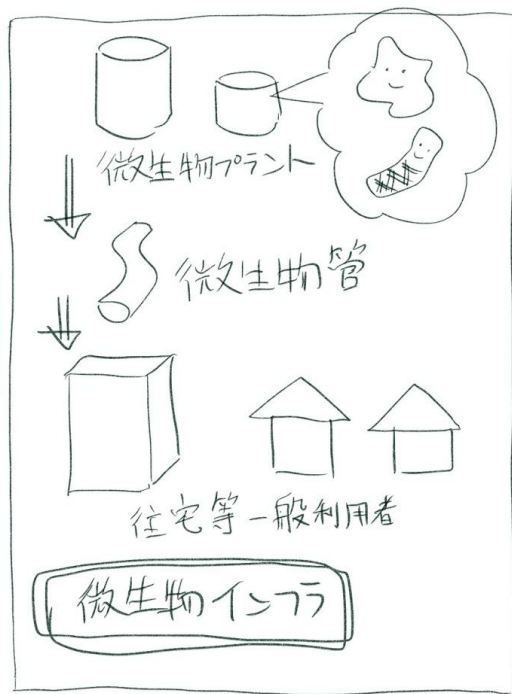 微生物プラント
微生物管
住宅等一般利用者
微生物インフラ